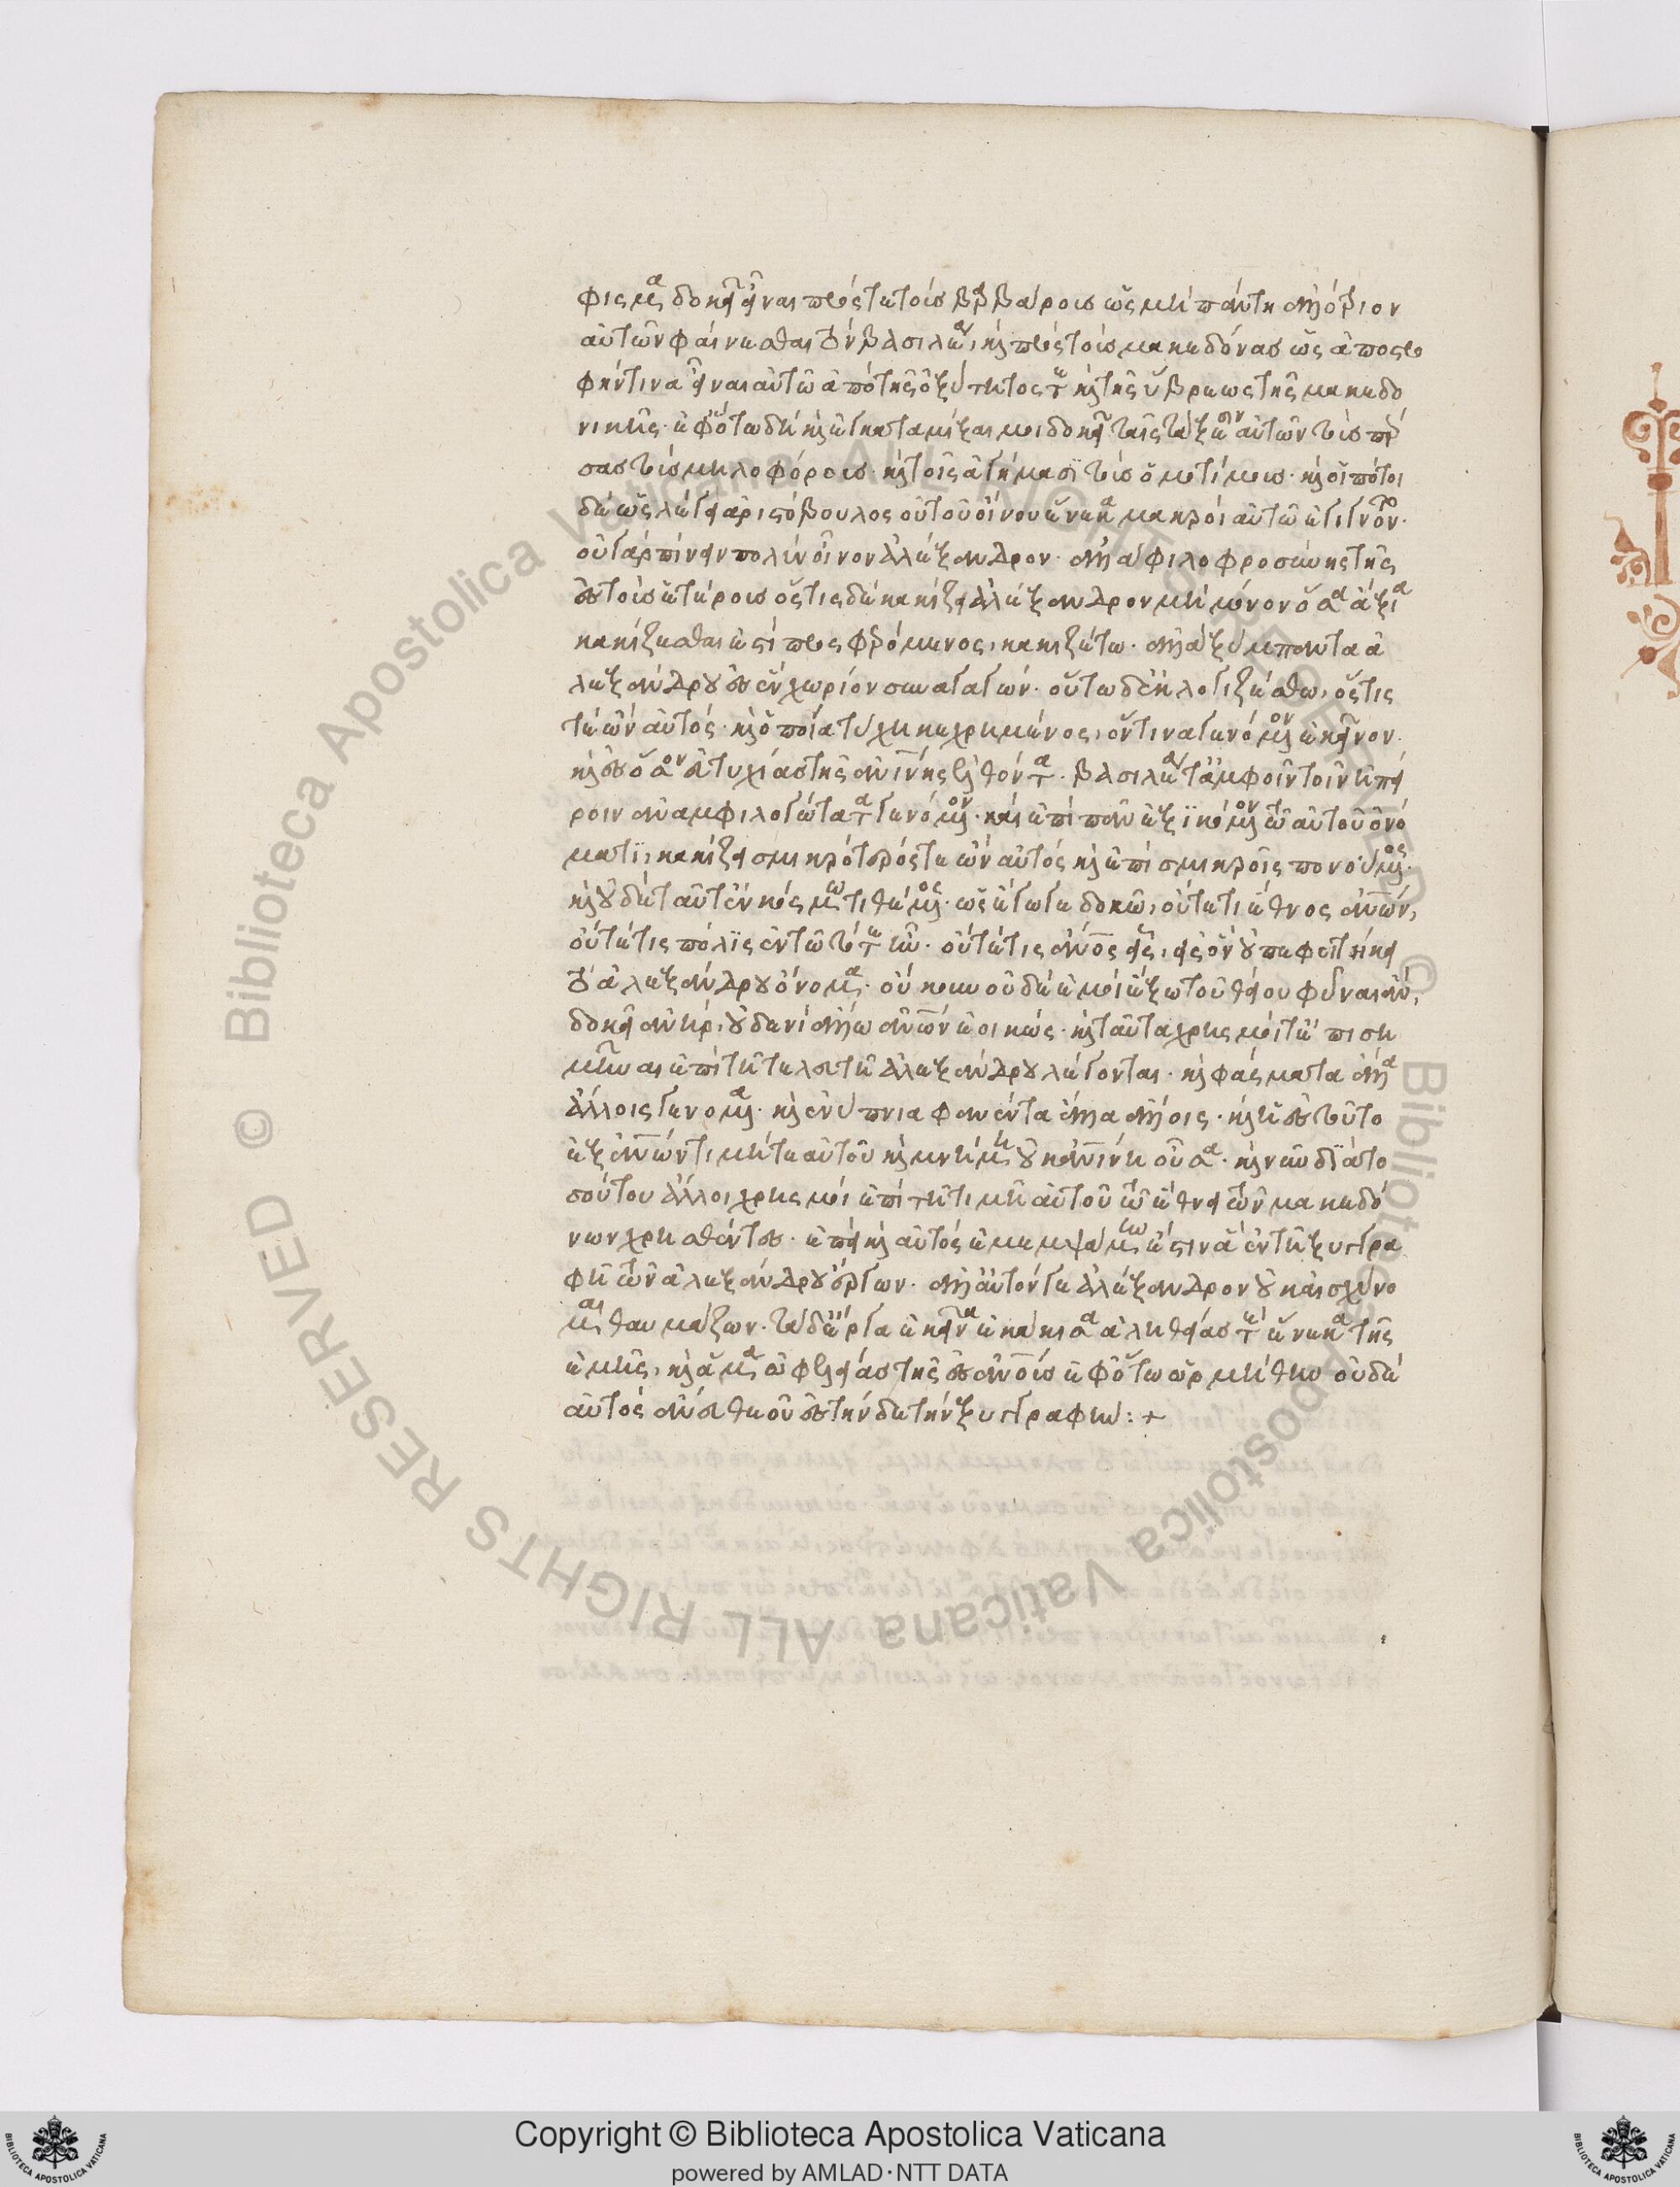 φισμα δοκεῖ εἶναι πρός τε τοὺς βαρβάρους ὡς μὴ πάντη ἀλλότριον
αὐτῶν φαίνεσθαι τὸν βασιλέα, καὶ πρὸς τοὺς μακεδόνας ὡς ἀποστρο
φήν τινα εἶναι αὐτῶ ἀπὸ τῆς ὀξύτητος τε καὶ τῆς ὕβρεως τῆς μακεδο
νικῆς· ἐφότω δὴ καὶ ἐγκαταμίξαι μοι δοκεῖ ταῖς τάξεσιν αὐτῶν τοὺς πέρ
σας τοὺς μηλοφόρους· καὶ τοῖς ἀγήμασϊ τοὺς ὁμοτίμους· καὶ οἱ πότοι
δέ ὡς λέγει ἀριστόβουλος οὐ τοῦ οἴνου ἕνεκα μακροὶ αὐτῶ ἐγίγνοντο·
οὐ γὰρ πίνειν πολὺν οἶνον ἀλέξανδρον· ἀλλὰ φιλοφροσύνης τῆς
ἐς τοὺς ἑταίρους ὅστις δὲ κακίζει ἀλέξανδρον μὴ μόνον ὅσα ἄξια
κακίζεσθαι ἐστὶ προσφερόμενος, κακιζέτω· ἀλλὰ ξύμπαντα ἀ
λεξάνδρου ἐς ἓν χωρίον συναγαγών· οὕτω δὲ ἐκλογιζέσθω, ὅστις
τε ὢν αὐτός· καὶ ὁποία τύχη κεχρημένος, ὅντινα γενόμενον ἐκεῖνον·
καὶ ἐς ὅσον εὐτυχίας τῆς ἀνθρωπίνης ἐλθόντα· βασιλέα τε ἀμφοῖν τοῖν ἠπεί
ροιν ἀναμφιλογώτατα γενόμενον· καὶ ἐπὶ πᾶν ἐξϊκόμενον τῶ αὑτοῦ ὀνό
ματϊ, κακίζει σμικρότερός τε ὢν αὐτὸς καὶ ἐπὶ σμικροῖς πονούμενος·
καὶ οὐδὲ ταῦτ ἐν κόσμω τιθέμενος· ὡς ἔγωγε δοκῶ, οὔτε τι ἔθνος ἀνθρώπων,
οὔτε τις πόλϊς ἐν τῶ τότε ἦν· οὔτε τις ἄνθρωπος εἷς, εἰς ὃν οὐ πεφοιτήκει
τὸ ἀλεξάνδρου ὄνομα· οὔκουν οὐδὲ ἐμοὶ ἔξω τοῦ θείου φῦναι ἂν,
δοκεῖ ἀνὴρ, οὐδενὶ ἄλλω ἀνθρώπων ἐοικώς· καὶ ταῦτα χρησμοί τε ἐπιση
μῆναι ἐπὶ τῆ τελευτῆ ἀλεξάνδρου λέγονται· καὶ φάσματα ἄλλα
ἄλλοις γενόμενα· καὶ ἐνύπνια φανέντα ἄλλα ἄλλοις· καὶ ἡ ἐς τοῦτο
ἐξ ἀνθρώπων τιμή τε αὐτοῦ καὶ μνήμη οὐκ ἀνθρωπίνη οὖσα· καὶ νῦν δϊὰ το
σούτου ἄλλοι χρησμοὶ ἐπὶ τῆ τιμῆ αὐτοῦ τῶ ἔθνει τῶν μακεδό
νων χρησθέντες· ἐπεὶ καὶ αὐτὸς ἐμεμψάμην ἔστιν ἃ ἐν τῆ ξυγγρα
φῆ τῶν ἀλεξάνδρου ἔργων· ἀλλὰ αὐτόν γε ἀλέξανδρον οὐκ αἰσχύνο
μαι θαυμάζων· τὰ δὲ ἔργα ἐκεῖνα ἐκάκισα ἀληθείας τε ἕνεκα τῆς
ἐμῆς, καὶ ἅμα ὠφελείας τῆς ἐς ἀνθρώπους ἐφότω ὡρμήθην οὐδὲ
αὐτὸς ἄνευ θεοῦ ἐς τήνδε τὴν ξυγγραφήν:+
Copyright © Biblioteca Apostolica Vaticana
powered by AMLAD·NTT DATA
© Biblioteca Apostolica Vaticana ALL RIGHTS RESERVED
© Biblioteca Apostolica Vaticana ALL RIGHTS RESERVED